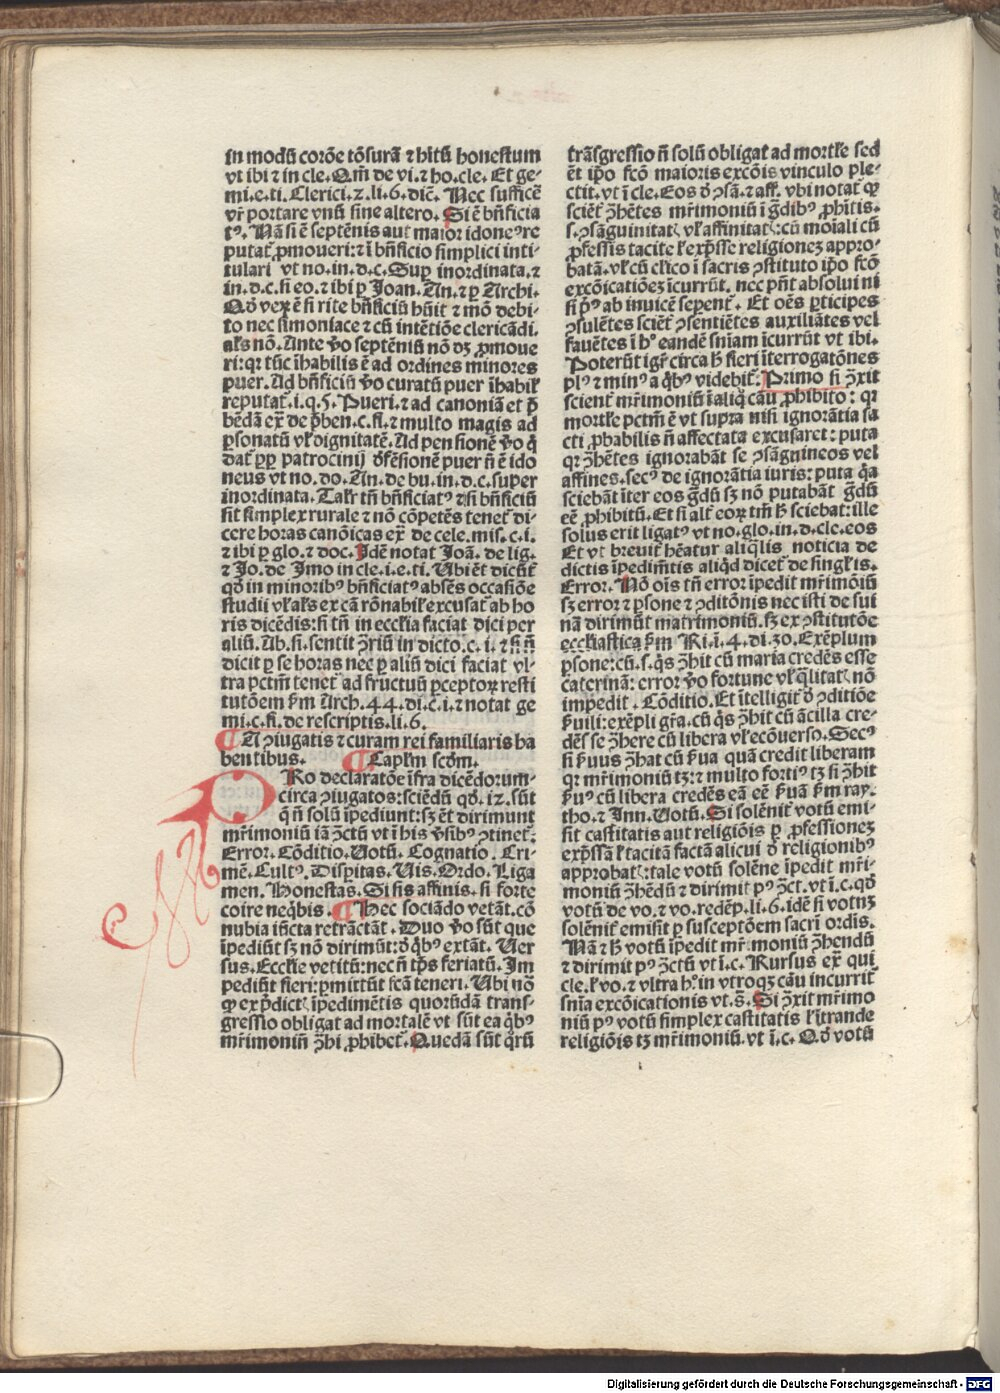 in modū corōe tōsurā ⁊ hitū honestum
vt ibi ⁊ in cle. Qm̄ de vi. ⁊ ho. cle. Et ge-
mi. e. ti. Clerici. 2. li. 6. dic̄. Nec sufficē
vr̄ portare vnū sine altero. Si ē bn̄ficia
tꝰ. Nā si ē septēnis aut maior idoneꝰ re
putat̄ ꝓmoueri: ⁊ ī bn̄ficio simplici inti-
tulari vt no. in. d. c. Suꝑ inordinata. ⁊
in. d. c. si eo. ⁊ ibi ꝑ Joan. An. ⁊ ꝑ Archi.
Qd̄ veꝝ ē si rite bn̄ficiū hūit ⁊ mō debi-
to nec simoniace ⁊ cū intētiōe clericādi.
als nō. Ante v̄o septēniū nō dꝫ ꝓmoue
ri: qꝛ tūc īhabilis ē ad ordines minores
puer. Ad bn̄ficiū v̄o curatū puer īhabil̄
reputat̄. i. q. 5. Pueri. ⁊ ad canoniā et p̄
bēdā ex̄ de p̄ben. c. fi. ⁊ multo magis ad
ꝑsonatū vl̄ dignitatē. Ad pensionē v̄o q̄
dat̄ ꝓpꝑ patrocinij d̄fēsionē puer n̄ ē ido
neus vt no. do. An. de bu. in. d. c. super
inordinata. Talr̄ tn̄ bn̄ficiatꝰ ⁊ si bn̄ficiū
sit simplex rurale ⁊ nō cōpetēs tenet̄ di-
cere horas canōicas ex̄ de cele. mis. c. i.
⁊ ibi ꝑ glo. ⁊ doc. Idē notat Joā. de lig.
⁊ Jo. de Imo in cle. i. e. ti. Ubi ēt dicūt
qd̄ in minoribꝰ bn̄ficiatꝰ absēs occasiōe
studii vl̄ als ex cā rōnabil̄ excusat̄ ab ho
ris dicēdis: si tn̄ in ecclīa faciat dici per
aliū. Ab. si. sentit ꝯriū in dicto. c. i. ⁊ si n̄
dicit ꝑ se horas nec ꝑ aliū dici faciat vl-
tra pctm̄ tenet̄ ad fructuū ꝑceptoꝝ resti
tutōem ẜm Arch. 44. di. c. i. ⁊ notat ge
mi. c. fi. de rescriptis. li. 6.
¶ A ꝯiugatis ⁊ curam rei familiaris ha
bentibus. ¶ Caplm̄ scdm̄.
PRo declaratōe īfra dicēdorum
circa ꝯiugatos: sciēdū qd̄. 12. sūt
q̄ n̄ solū īpediunt: sꝫ ēt dirimunt
mr̄imoniū iā ꝯctū vt ī his v̄sibꝰ ꝯtinet̄:
Error. Cōditio. Uotū. Cognatio. Cri-
mē. Cultꝰ. Disꝑitas. Uis. Ordo. Liga
men. Honestas. Si sis affinis. si forte
coire neq̄bis. ¶ Hec sociādo vetāt. cō
nubia iūcta retractāt. Duo v̄o sūt que
īpediūt sꝫ nō dirimūt: d̄ qb̄ꝰ extāt. Uer
sus. Ecclīe vetitū: nec n̄ tp̄s feriatū. Im
pediūt fieri: ꝑmittūt fcā teneri. Ubi nō
ꝙ ex p̄dict̄ īpedimētis quorūdā trans-
gressio obligat ad mortalē vt sūt ea qb̄ꝰ
mr̄imoniū ꝯhi ꝓhibet̄. Quedā sūt qr̄ū
trāsgressio n̄ solū obligat ad mortle sed
ēt ip̄o fcō maioris excōis vinculo ple-
ctit. vt ī cle. Eos d̄ ꝯsā. ⁊ aff. vbi notat̄ ꝙ
sciēt̄ ꝯhētes mr̄imoniū ī gdibꝰ ꝓhitis.
s. ꝯsāguinitat̄ vl̄ affinitat̄: cū moīali cū
ꝓfessis tacite l̄ exp̄sse religioneꝫ appro-
batā. vl̄ cū clīco ī sacris ꝯstituto ip̄o fcō
excōicatiōeꝫ īcurrūt. nec pn̄t absolui ni
si pꝰ ab inuicē seꝑent̄. Et oēs ꝑticipes
ꝯsulētes sciēt̄ ꝯsentiētes auxiliātes vel
fauētes ī hꝰ eandē sn̄iam īcurrūt vt ibi.
Poterūt igr̄ circa h̄ fieri īterrogatōnes
plꝰ ⁊ minꝰ a qb̄ꝰ videbit̄: Primo si ꝯxit
scient̄ mr̄imoniū ī aliq̄ cāu ꝓhibito: qꝛ
mortle pctm̄ ē vt supra nisi ignorātia fa
cti ꝓbabilis n̄ affectata excusaret: puta
qꝛ ꝯhētes ignorabāt se ꝯsāguineos vel
affines. secꝰ de ignorātia iuris: puta q̄a
sciebāt īter eos gdū sꝫ nō putabāt gdū
eē ꝓhibitū. Et si alt̄ eoꝝ tm̄ h̄ sciebat: ille
solus erit ligatꝰ vt no. glo. in. d. cle. eos
Et vt breuit̄ hēatur aliq̄lis noticia de
dictis īpedim̄tis aliqd̄ dicet̄ de singl̄is.
Error. Nō oīs tn̄ error īpedit mr̄imōiū
sꝫ error ⁊ ꝑsone ⁊ ꝯditōnis nec isti de sui
nā dirimūt matrimoniū. sꝫ ex ꝯstitutōe
ecclesiastica ẜm Ri. ī. 4. di. 30. Exēplum
ꝑsone: cū. s. q̄s ꝯhit cū maria credēs esse
caterinā: error v̄o fortune vl̄ q̄litat̄ nō
impedit. Cōditio. Et ītelligit̄ d̄ ꝯditiōe
ẜuili: exēpli gr̄a. cū q̄s ꝯhit cū ācilla cre-
dēs se ꝯhere cū libera vl̄ ecōuerso. Secꝰ
si ẜuus ꝯhat cū ẜua quā credit liberam
qꝛ mr̄imoniū tꝫ: ⁊ multo fortiꝰ tꝫ si ꝯhit
ẜuꝰ cū libera credēs eā eē ẜuā ẜm ray.
tho. ⁊ Inn. Uotū. Si solēnit̄ votū emi-
sit castitatis aut religiōis ꝑ ꝓfessioneꝫ
exp̄ssā l̄ tacitā factā alicui d̄ religionibꝰ
approbat̄: tale votū solēne īpedit mr̄i-
moniū ꝯhēdū ⁊ dirimit pꝰ ꝯct. vt ī. c. qd̄
votū de vo. ⁊ vo. redēp. li. 6. idē si votuꝫ
solēnit̄ emisit ꝑ susceptōem sacri ordis.
Nā ⁊ h̄ votū īpedit mr̄imoniū ꝯhendū
⁊ dirimit pꝰ ꝯctū vt ī. c. Rursus ex̄ qui
cle. l̄ vo. ⁊ vltra hꝰ in vtroqꝫ cāu incurrit
sn̄ia excōicationis vt. s̄. Si ꝯxit mr̄imo
niū pꝰ votū simplex castitatis l̄ ītrande
religiōis tꝫ mr̄imoniū. vt ī. c. Qd̄ votū
Digitalisierung gefördert durch die Deutsche Forschungsgemeinschaft - DFG